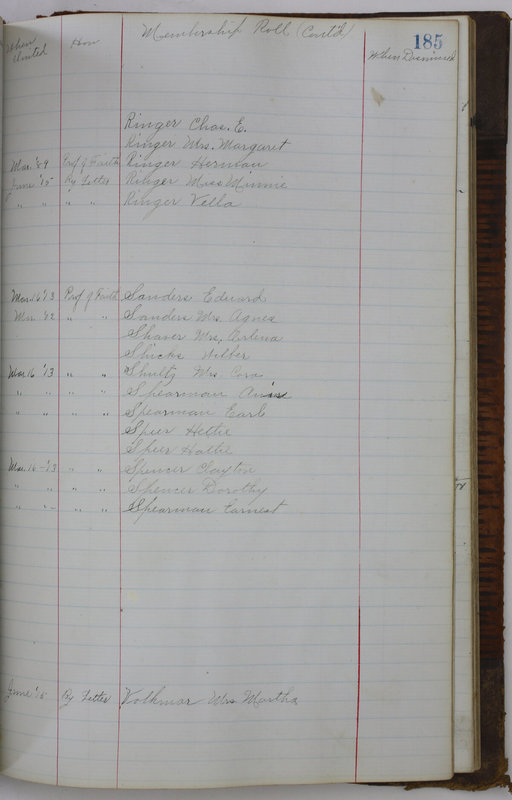 Membership Roll (Cont'd) 185
When United How When Dismissed
Ringer Chas. E.
Ringer Mrs. Margaret
Mar. '89 Prof of Faith Ringer Herman
June '15 By Letter Ringer Miss Minnie
" " " " Ringer Vella
Mar. 16 '13 Prof of Faith Sanders Edward
Mar. '02 " " Sanders Mrs. Agnes
Shaver Mrs. Arlena
Shicks Wilber
Mar. 16 '13 " " Shultz Mrs Cora
" " " " Spearman
" " " " Spearman Earl
Speer Hettie
Speer Hattie
Mar. 16 - '13 " " Spencer Clayton
" " " " Spencer Dorothy
" " " " Spearman Earnest
June '15 By Letter Volkmar Mrs Martha